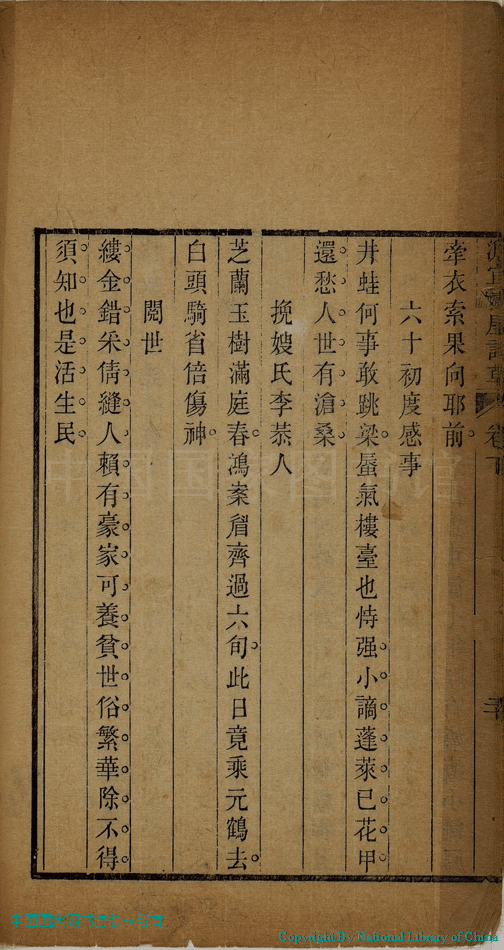 牽衣索果向耶前
六十初度感事
井蛙何事敢跳梁蜃氣樓臺也恃强小謫蓬萊已花甲
還愁人世有滄桑
挽嫂氏李恭人
芝蘭玉樹滿庭春鴻案眉齊過六旬此日竟乘元鶴去
白頭騎省倍傷神
閱世
縷金錯采倩縫人賴有豪家可養貧世俗繁華除不得
須知也是活生民
Copyright By National Library of China